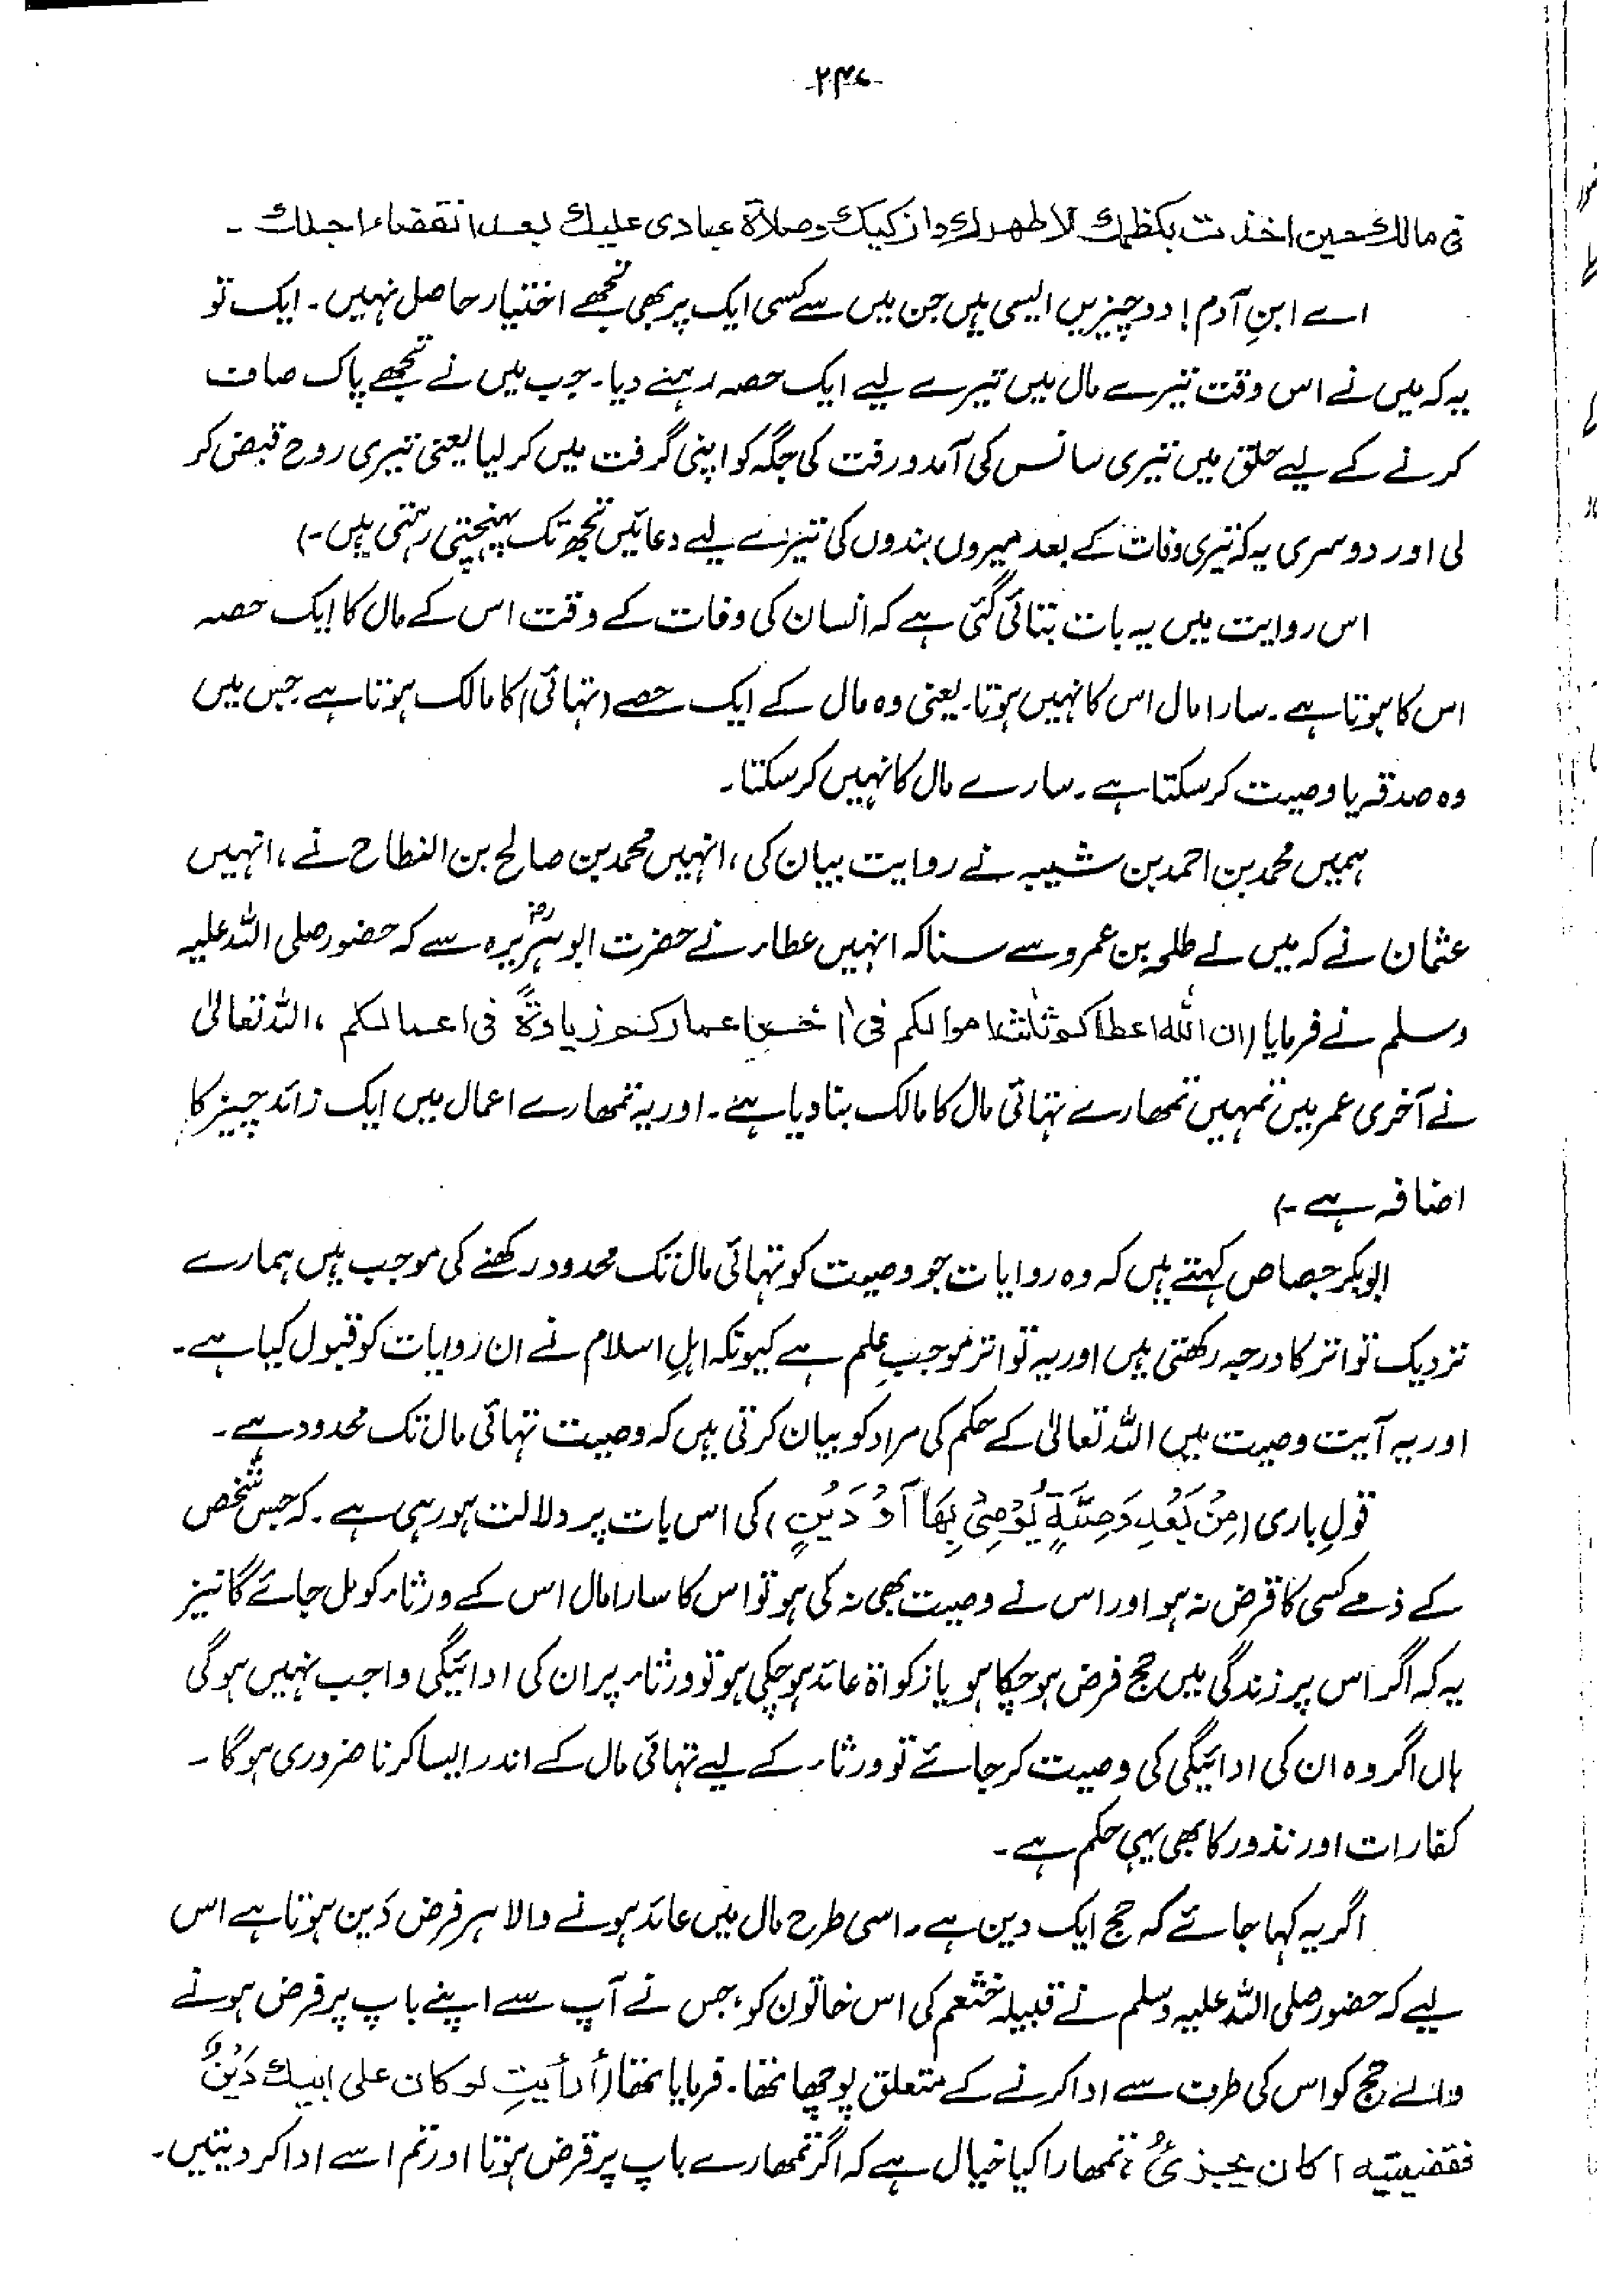 -۲۴۷-
فی مالك حین اخذت بکظمك لاطهرك وازکیك وصلاة عبادی علیك بعد انقضاء اجلك۔
اے ابنِ آدم! دو چیزیں ایسی ہیں جن میں سے کسی ایک پر بھی تجھے اختیار حاصل نہیں۔ ایک تو
یہ کہ میں نے اس وقت تیرے مال میں تیرے لیے ایک حصہ رہنے دیا۔ جب میں نے تجھے پاک صاف
کرنے کے لیے حلق میں تیری سانس کی آمدورفت کی جگہ کو اپنی گرفت میں کر لیا یعنی تیری روح قبض کر
لی اور دوسری یہ کہ تیری وفات کے بعد میروں بندوں کی تیرے لیے دعائیں تجھ تک پہنچتی رہتی ہیں۔)
اس روایت میں یہ بات بتائی گئی ہے کہ انسان کی وفات کے وقت اس کے مال کا ایک حصہ
اس کا ہوتا ہے۔ سارا مال اس کا نہیں ہوتا۔ یعنی وہ مال کے ایک حصے (تہائی) کا مالک ہوتا ہے جس میں
وہ صدقہ یا وصیت کر سکتا ہے۔ سارے مال کا نہیں کر سکتا۔
ہمیں محمد بن احمد بن شیبہ نے روایت بیان کی، انہیں محمد بن صالح بن النطاح نے، انہیں
عثمان نے کہ میں نے طلحہ بن عمرو سے سنا کہ انہیں عطاء نے حضرت ابوہریرہؓ سے کہ حضور صلی اللہ علیہ
وسلم نے فرمایا (ان الله اعطاكم ثلث اموالکم فی اٰخر اعمارکم زیادةً فی اعمالکم، اللہ تعالیٰ
نے آخری عمر میں تمہیں تمھارے تہائی مال کا مالک بنا دیا ہے۔ اور یہ تمھارے اعمال میں ایک زائد چیز کا
اضافہ ہے۔)
ابوبکر جصاص کہتے ہیں کہ وہ روایات جو وصیت کو تہائی مال تک محدود رکھنے کی موجب ہیں ہمارے
نزدیک تواتر کا درجہ رکھتی ہیں اور یہ تواتر موجبِ علم ہے کیونکہ اہلِ اسلام نے ان روایات کو قبول کیا ہے۔
اور یہ آیت وصیت میں اللہ تعالیٰ کے حکم کی مراد کو بیان کرتی ہیں کہ وصیت تہائی مال تک محدود ہے۔
قولِ باری (مِنْ بَعْدِ وَصِیَّةٍ یُّوْصِیْ بِهَآ اَوْ دَیْنٍ) کی اس بات پر دلالت ہو رہی ہے۔ کہ جس شخص
کے ذمے کسی کا قرض نہ ہو اور اس نے وصیت بھی نہ کی ہو تو اس کا سارا مال اس کے ورثاء کو مل جائے گا نیز
یہ کہ اگر اس پر زندگی میں حج فرض ہو چکا ہو یا زکواۃ عائد ہو چکی ہو تو ورثاء پر ان کی ادائیگی واجب نہیں ہوگی
ہاں اگر وہ ان کی ادائیگی کی وصیت کر جائے تو ورثاء کے لیے تہائی مال کے اندر ایسا کرنا ضروری ہوگا۔
کفارات اور نذور کا بھی یہی حکم ہے۔
اگر یہ کہا جائے کہ حج ایک دین ہے۔ اسی طرح مال میں عائد ہونے والا ہر فرض دَین ہوتا ہے اس
لیے کہ حضور صلی اللہ علیہ وسلم نے قبیلہ خثعم کی اس خاتون کو، جس نے آپ سے اپنے باپ پر فرض ہونے
والے حج کو اس کی طرف سے ادا کرنے کے متعلق پوچھا تھا۔ فرمایا تھا (أرأیتِ لو کان علی ابیك دَیْنٌ
فقضیتیه اکان یجزئُ، تمھارا کیا خیال ہے کہ اگر تمھارے باپ پر قرض ہوتا اور تم اسے ادا کر دیتیں۔